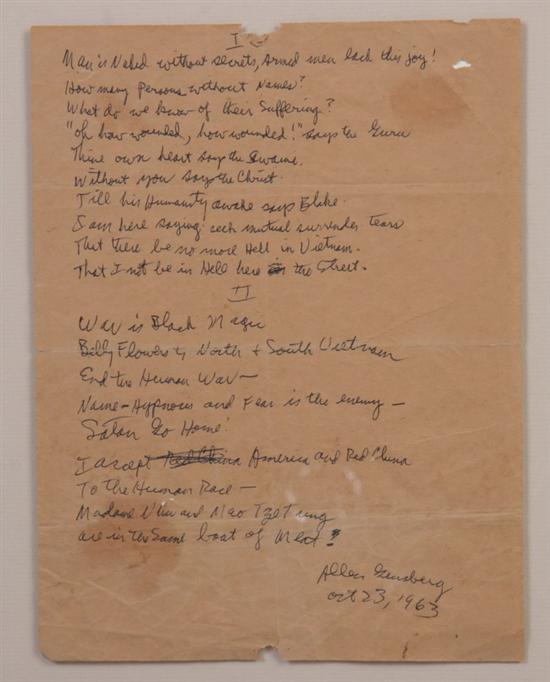 I
Man is Naked without secrets, Armed men lack this joy!
How many Persons without Names?
What do we know of their Suffering?
"oh how wounded, how wounded!" says the Guru
Thine own heart says the Swami.
Without you says the Christ.
Till his Humanity awake says Blake.
I am here saying: seek mutual surrender tears
That there be no more Hell in Vietnam.
That I not be in Hell here in the Street.
II
War is Black Magic
Belly Flowers to North + South Vietnam
End the Human War —
Name-Hypnosis and Fear is the enemy —
Satan Go Home!
I accept Red China America and Red China
To the Human Race —
Madame Nhu and Mao Tze Tung
are in the Same boat of Meat!
Allen Ginsberg
Oct 23, 1963